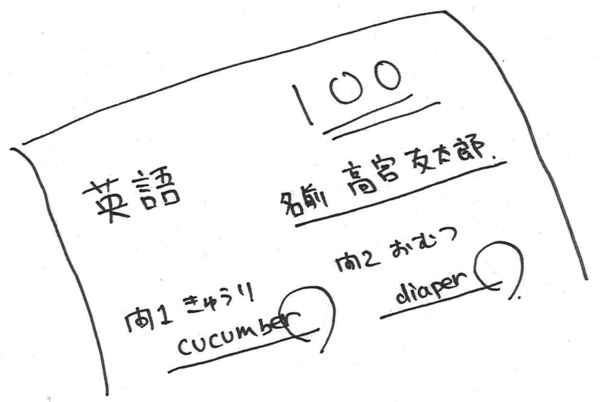 100
英語
名前 高宮 友太郎.
問1 きゅうり
cucumber
問2 おむつ
diaper